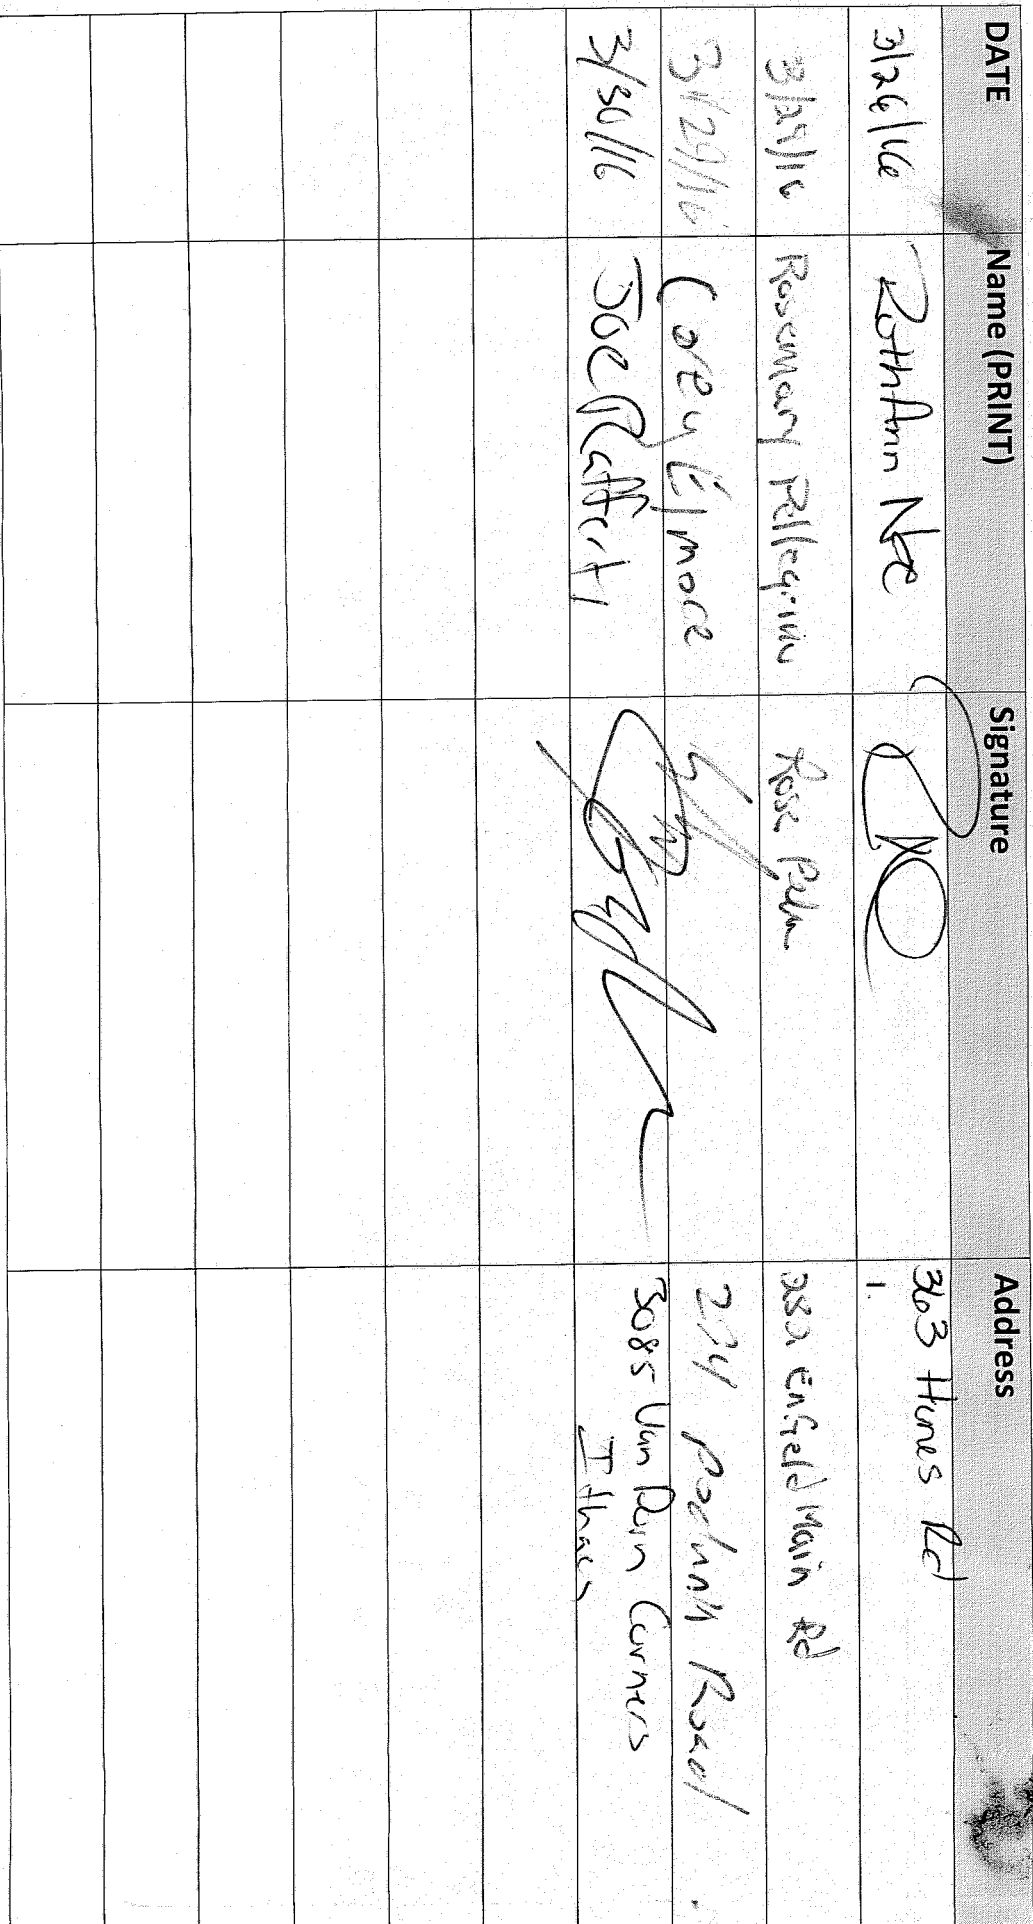 DATE Name (PRINT) Signature Address
3/26/16 RuthAnn 363 Hines Rd
3/29/16 Rosemary Pellegrini Rose 282 Enfield Main Rd
3/29/16 Corey Elmore 224 Podunk Road
3/30/16 Joe Rafferty 3085 Van Corners
Ithaca